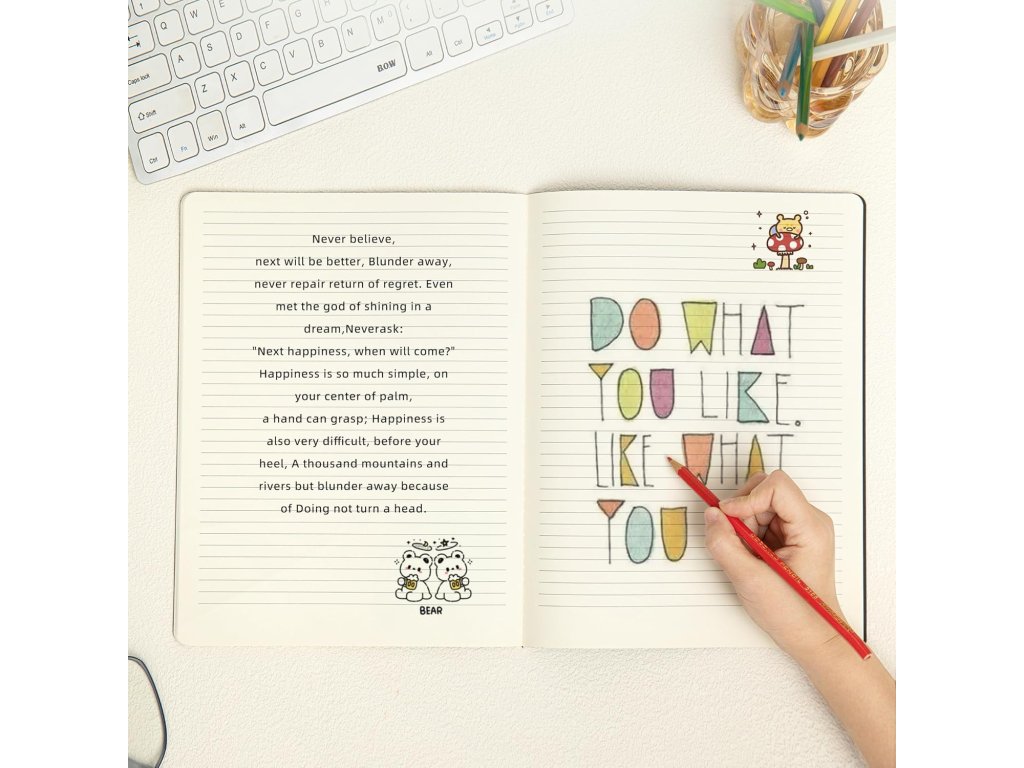 Q W E
A S D F G H J K
Caps lock
Shift Z X C V B N M
BOW
Ctrl Fn Win Alt Alt Ctrl Home End
Never believe,
next will be better, Blunder away,
never repair return of regret. Even
met the god of shining in a
dream,Neverask:
"Next happiness, when will come?"
Happiness is so much simple, on
your center of palm,
a hand can grasp; Happiness is
also very difficult, before your
heel, A thousand mountains and
rivers but blunder away because
of Doing not turn a head.
BEAR
DO WHAT
YOU LIKE.
LIKE WHAT
YOU